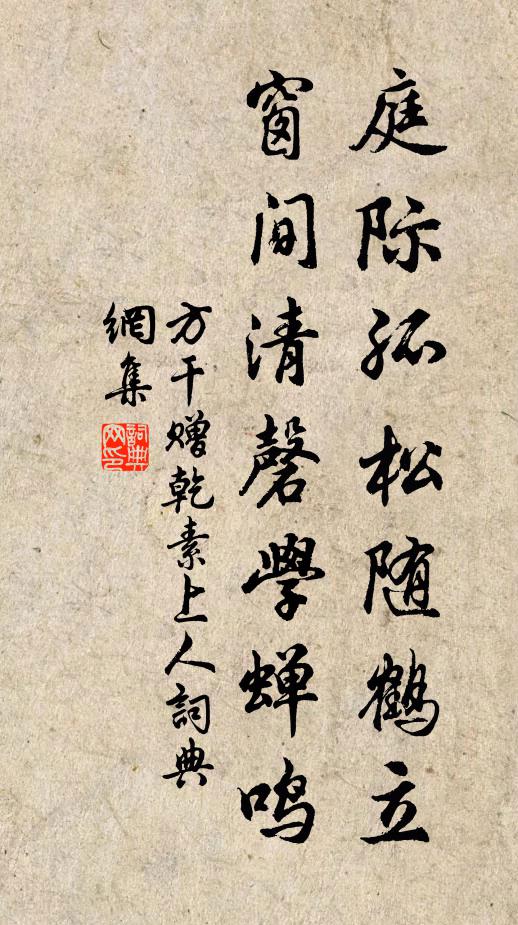 庭际孤松随鹤立
窗间清磬學蝉鸣
方干赠乾素上人詞典
網集
詞典
网印